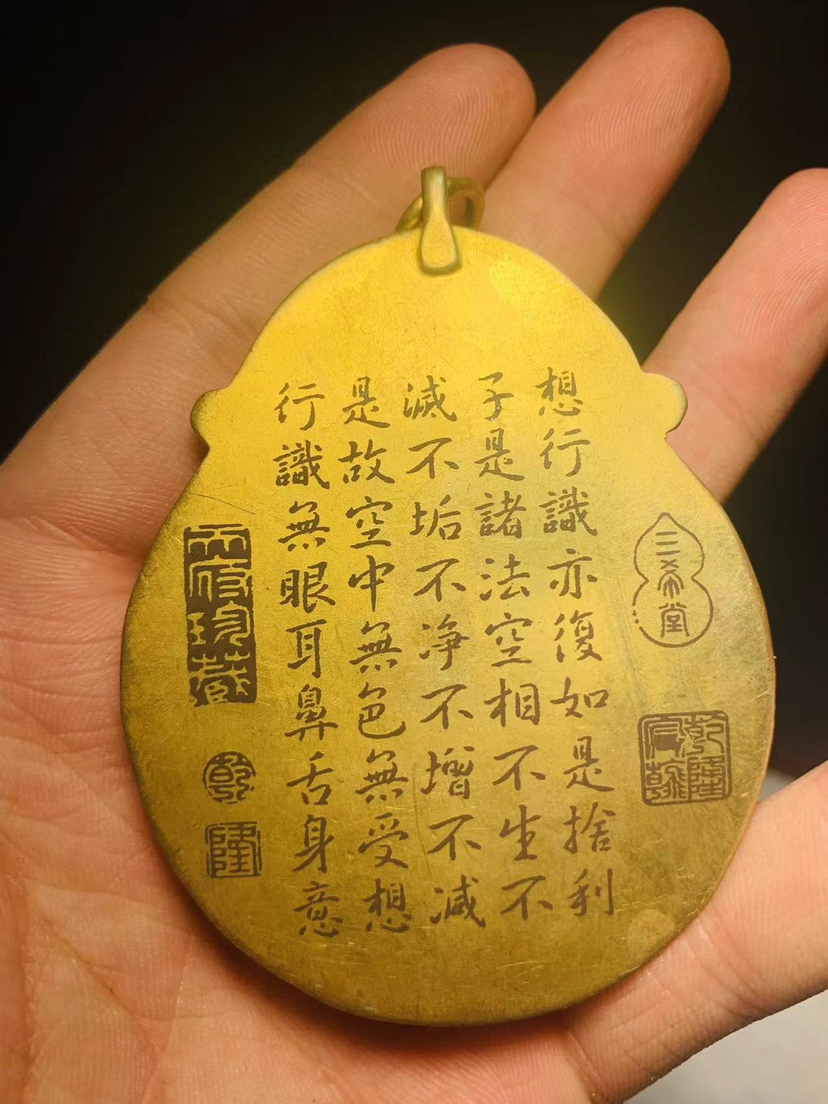 三希堂
乾隆宸翰
想行識亦復如是捨利
子是諸法空相不生不
滅不垢不净不增不減
是故空中無色無受想
行識無眼耳鼻舌身意
内府珍藏
乾
隆